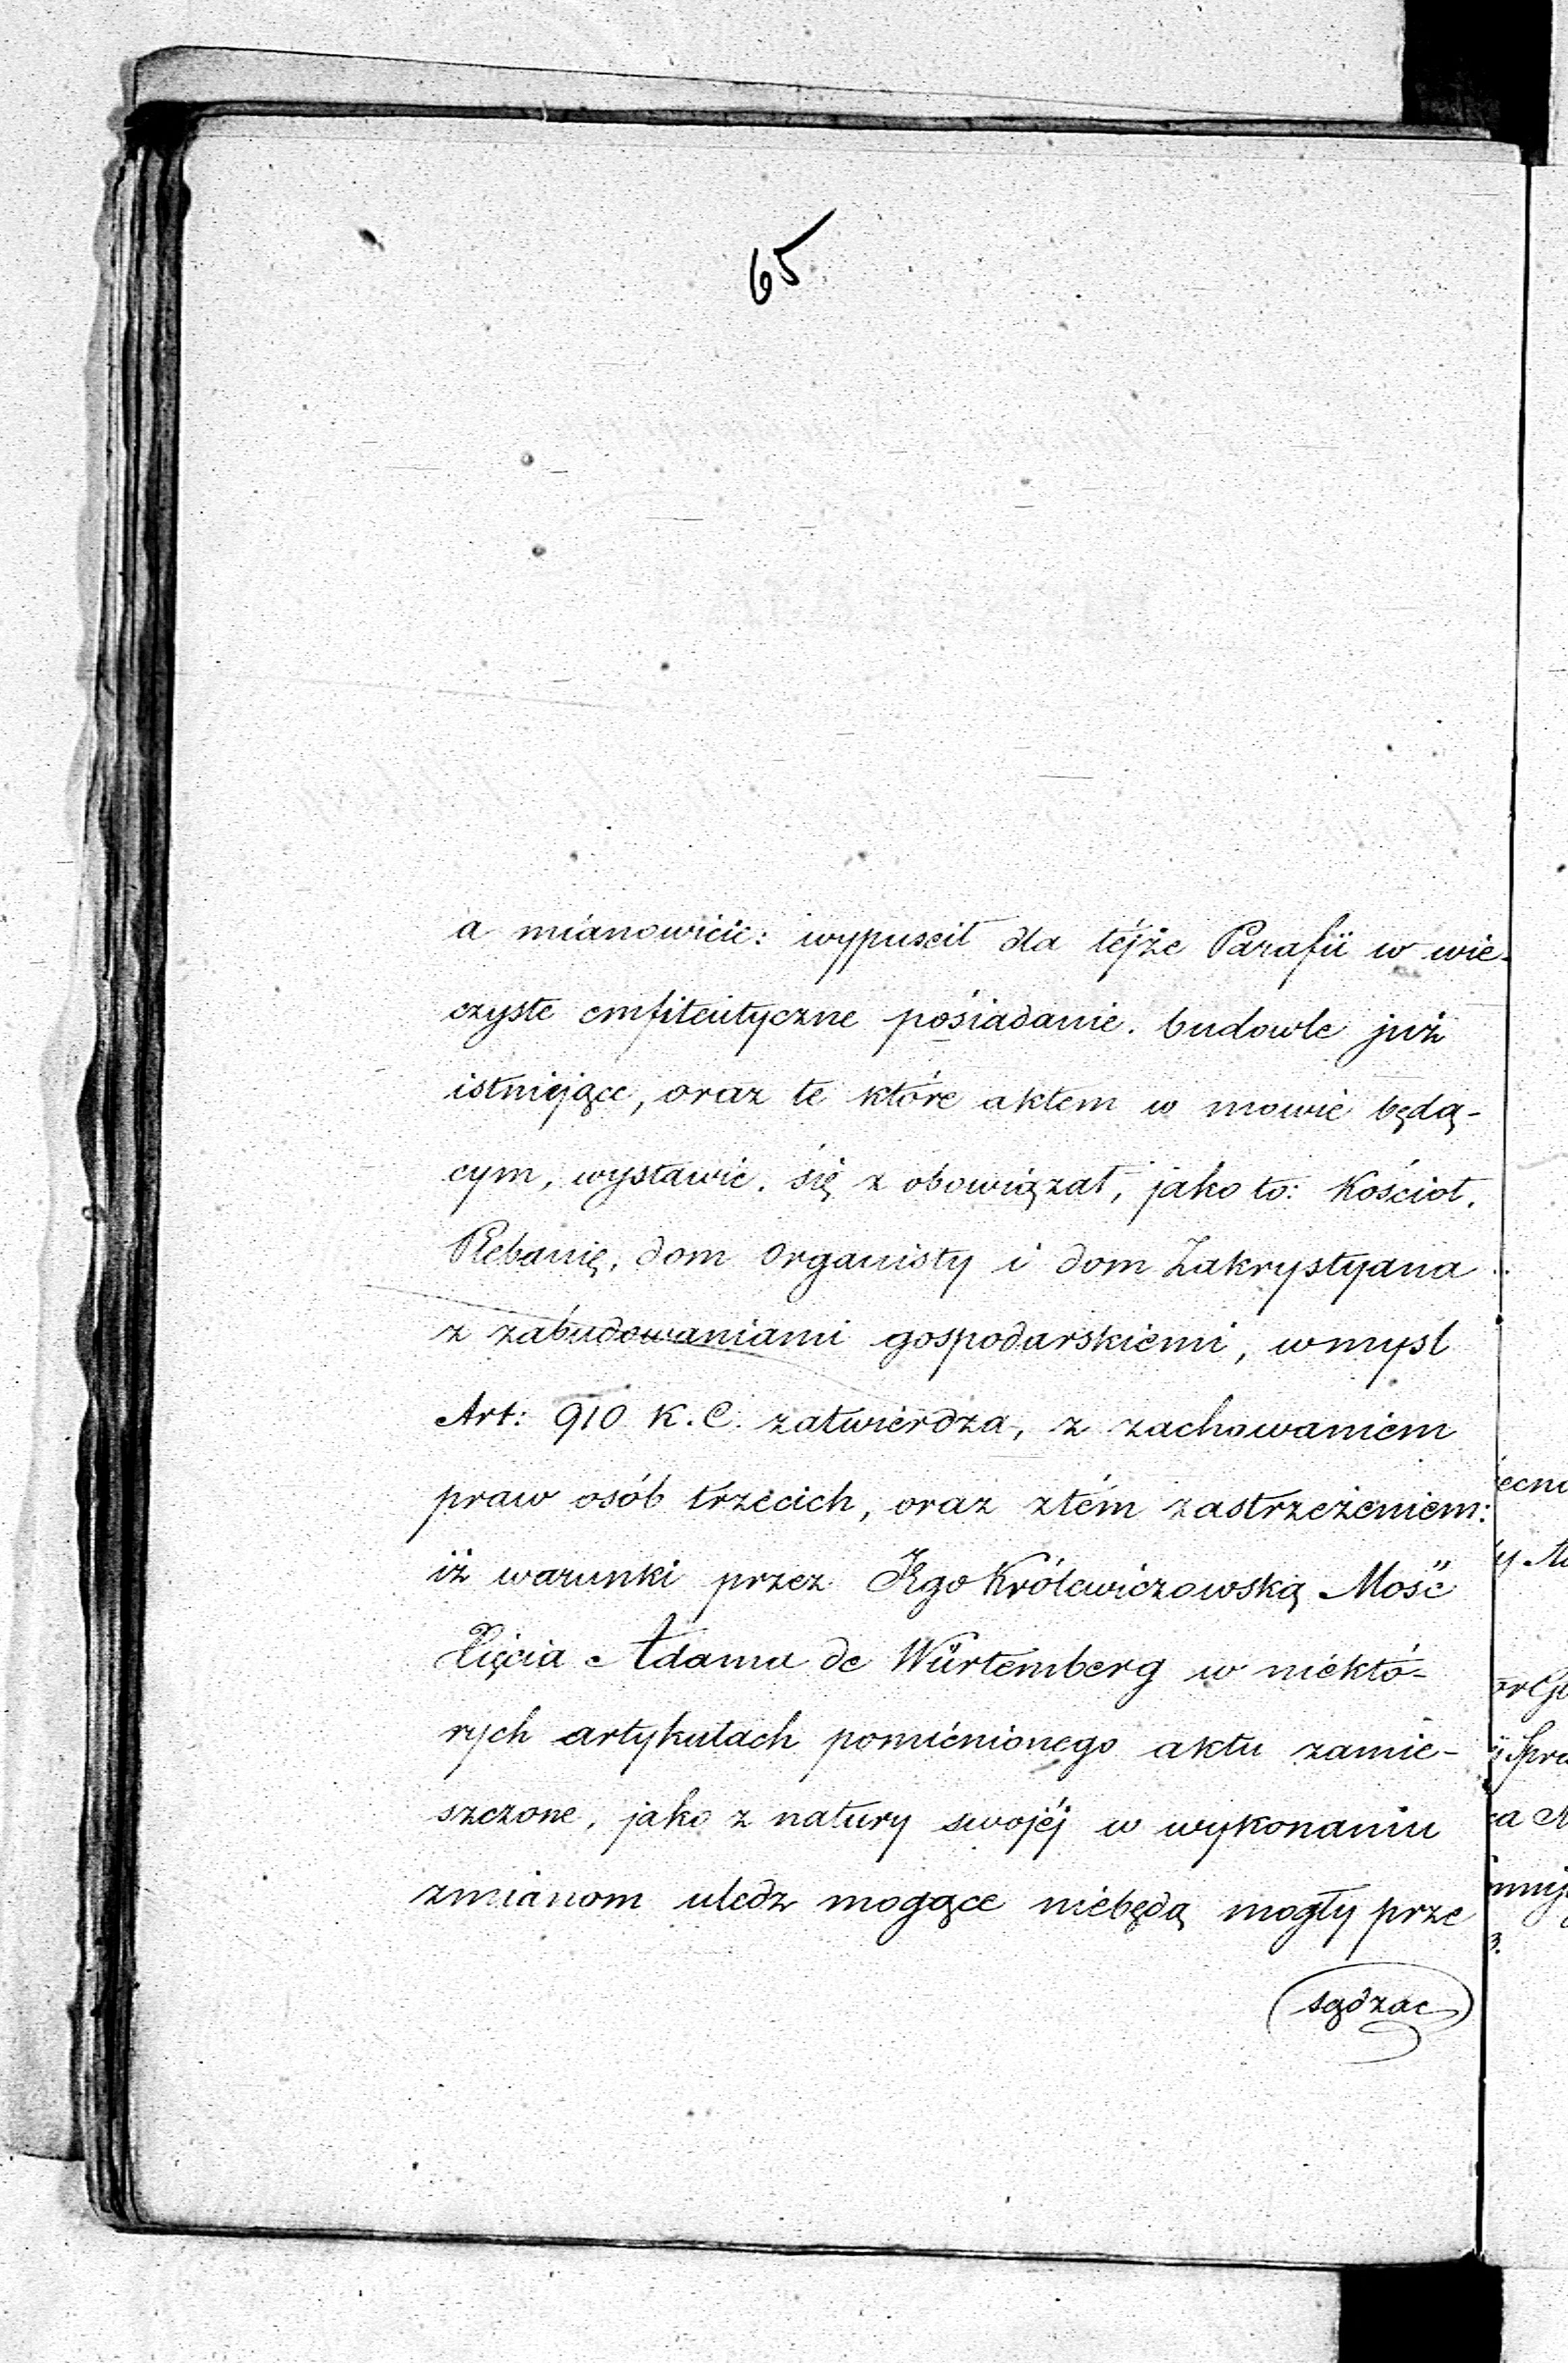 65
a mianowicie: wypuscił dla tejże Parafii w wie-
czyste emfiteutyczne posiadanie. budowle już
istniejące, oraz te które aktem w mowie będą-
cym, wystawic. się zobowiązał, jako to: Kościoł.
Plebanię, dom Organisty i dom Zakrystyana
z zabudowaniami gospodarskiemi, wmysl
Art: 910 K. C. zatwierdza, z zachowaniem
praw osób trzecich, oraz ztém zastrzeżeniem:
iż warunki przez Jego Królewiczowską Mość
Xięcia Adama de Würtemberg w niektó-
rych artykułach pomienionego aktu zamie-
szczone, jako z natury swojéj w wykonaniu
zmianom uledz mogące niebędą mogły prze
sądzac